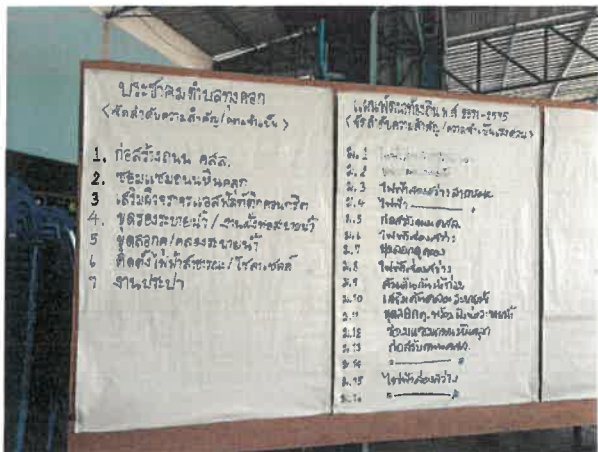 ประชาคมตำบลทุ่งคอก
<จัดลำดับความสำคัญ/ความจำเป็น>
1. ก่อสร้างถนน คสล.
2. ซ่อมแซมถนนหินคลุก
3 เสริมผิวจราจรแอสฟัลท์ติกคอนกรีต
4. ขุดร่องระบายน้ำ/งานฝังท่อระบายน้ำ
5 ขุดลอกคู/คลองระบายน้ำ
6 ติดตั้งไฟฟ้าสาธารณะ/โซล่าเซลล์
7 งานประปา
แผนพัฒนาท้องถิ่น พ.ศ. 2571-2575
<จัดลำดับความสำคัญ/ความจำเป็นเร่งด่วน>
ม.1
ม.2
ม.3 ไฟฟ้าส่องสว่างสาธารณะ
ม.4 ไฟฟ้า
ม.5 ก่อสร้างถนน คสล.
ม.6 ไฟฟ้าส่องสว่าง
ม.7 ขุดลอกคูคลอง
ม.8 ไฟฟ้าส่องสว่าง
ม.9
ม.10 เสริมคันคลองระบายน้ำ
ม.11 ขุดลอกคู
ม.12 ซ่อมแซมถนนหินคลุก
ม.13 ก่อสร้างถนน คสล.
ม.14 " "
ม.15 ไฟฟ้าส่องสว่าง
ม.16 " "